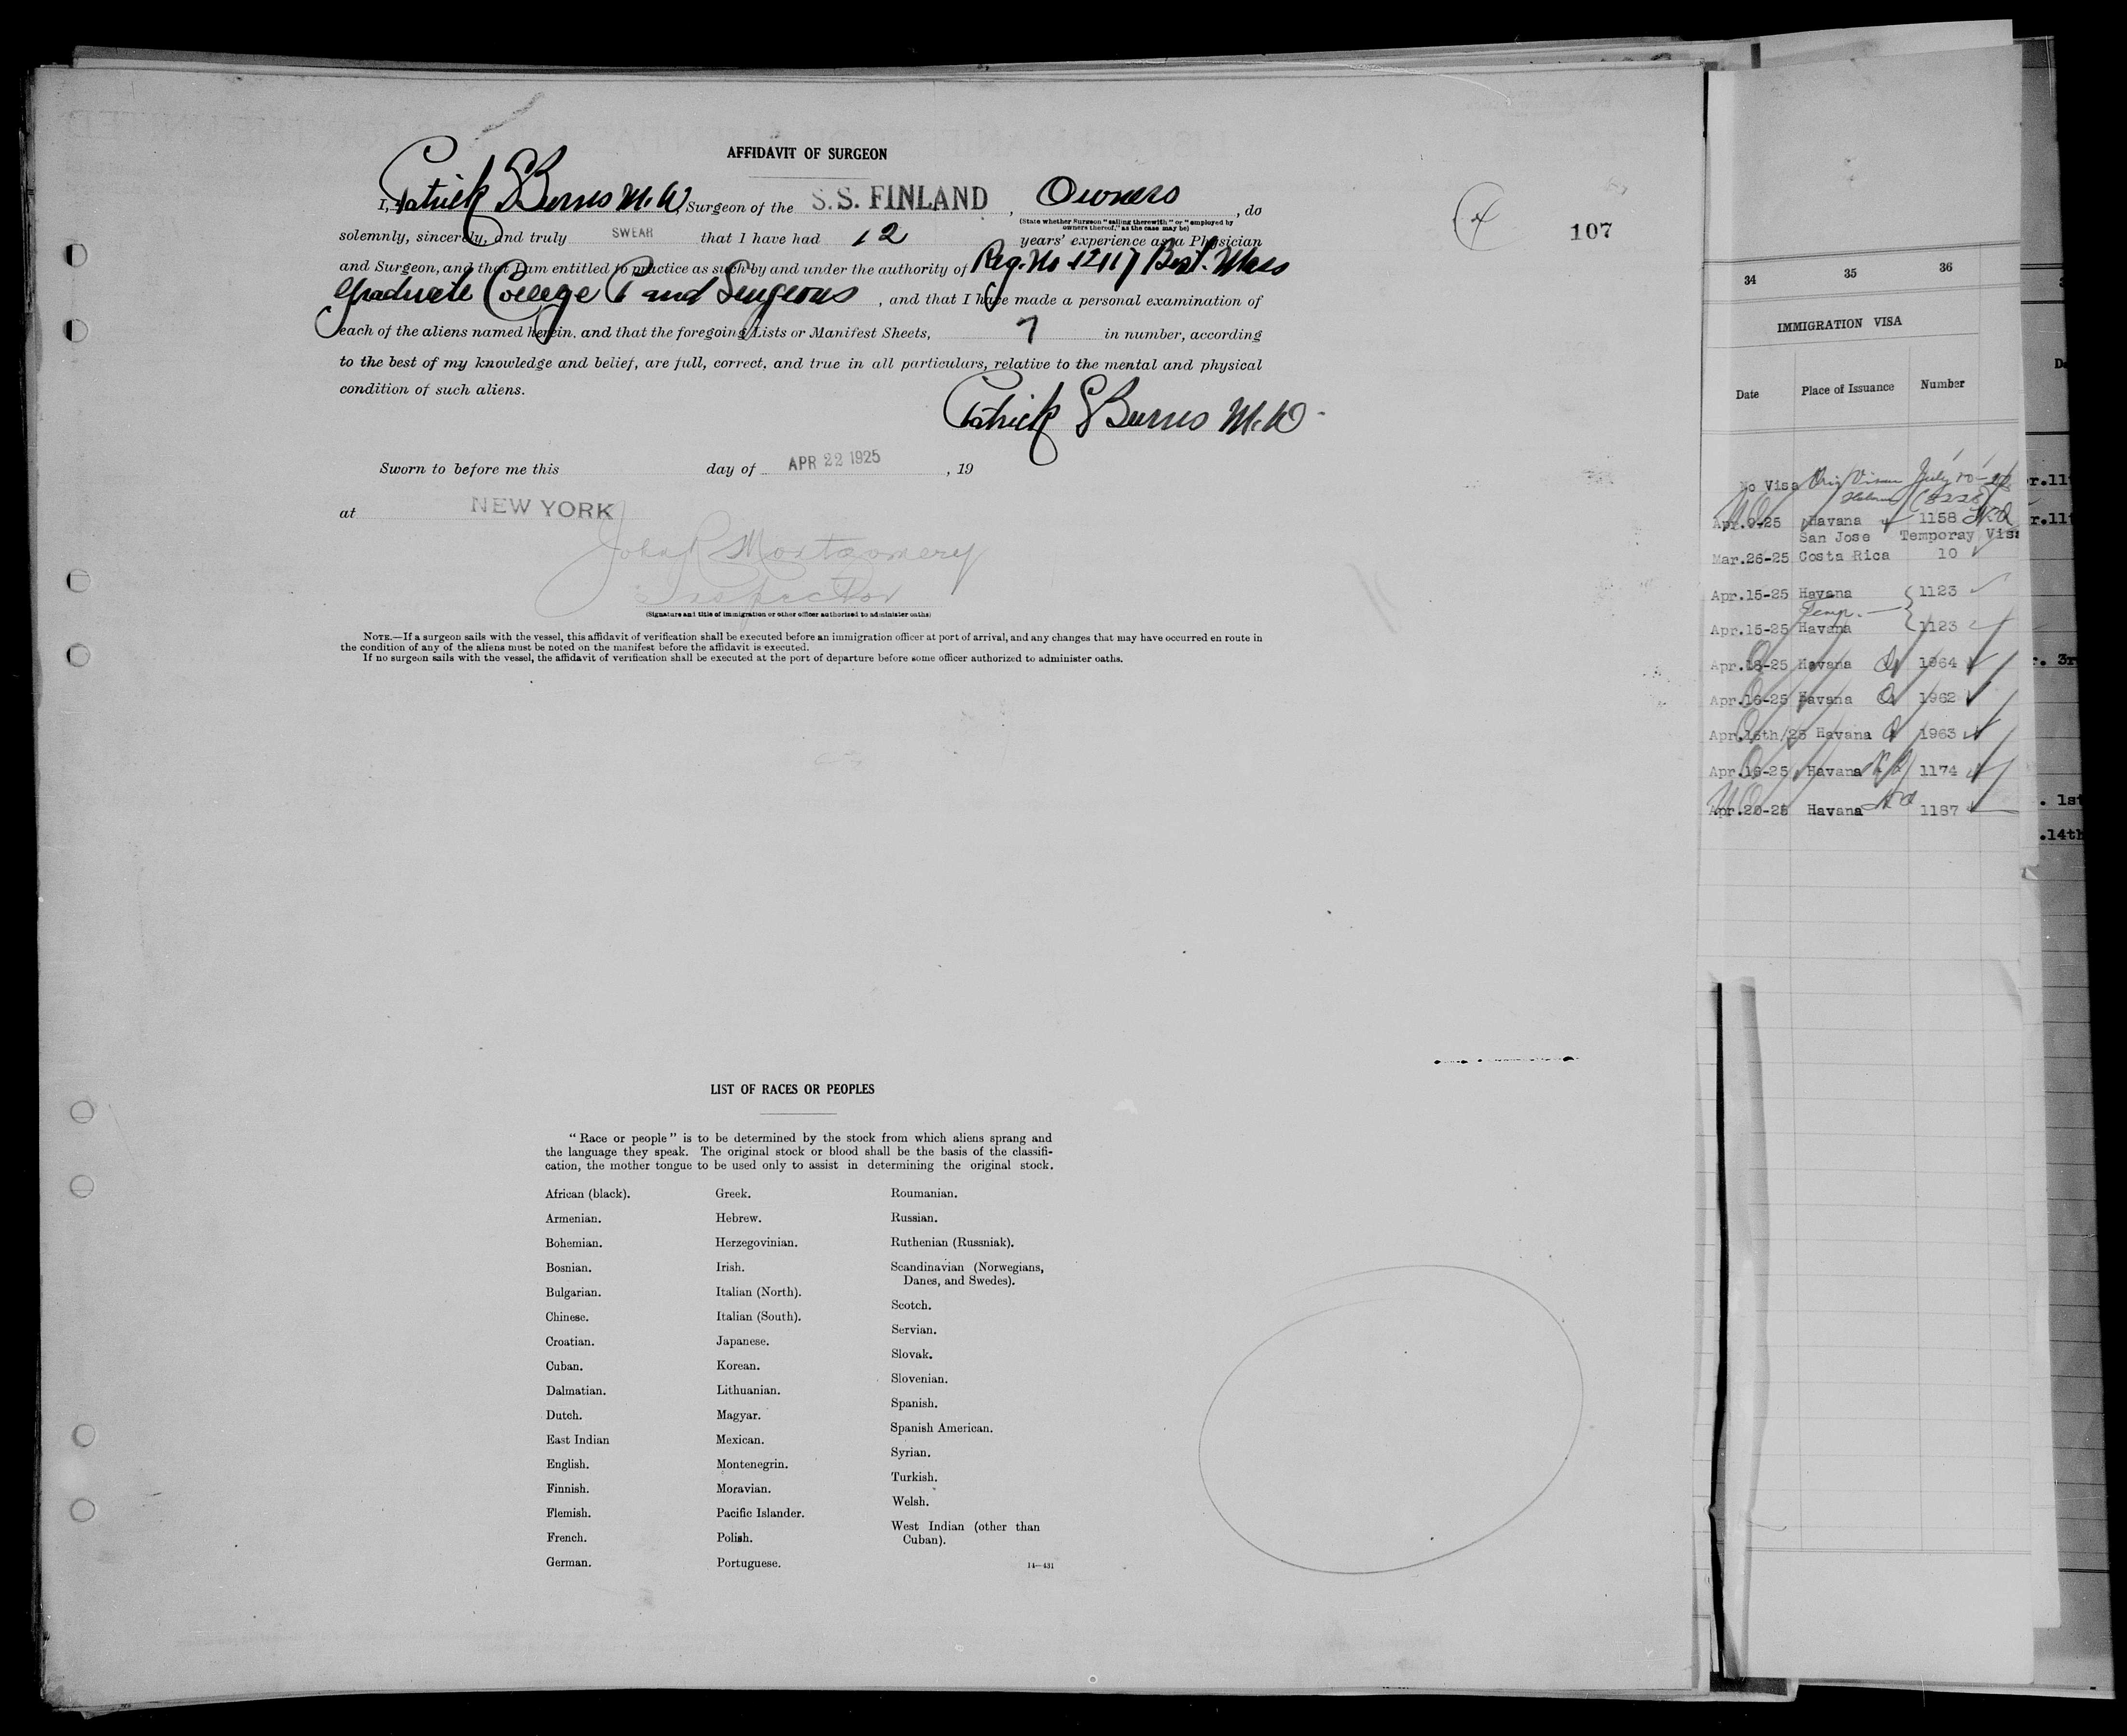 AFFIDAVIT OF SURGEON
I, Patrick S Burns M.D, Surgeon of the S.S. FINLAND, Owners, do
(State whether Surgeon "sailing therewith" or "employed by
owners thereof," as the case may be)
solemnly, sincerely, and truly SWEAR that I have had 12 years' experience as a Physician
and Surgeon, and that I am entitled to practice as such by and under the authority of Reg. No 12117 Bost. Mass
Graduate College P and Surgeons, and that I have made a personal examination of
each of the aliens named herein, and that the foregoing Lists or Manifest Sheets, 7 in number, according
to the best of my knowledge and belief, are full, correct, and true in all particulars, relative to the mental and physical
condition of such aliens.
Patrick S Burns M.D.
Sworn to before me this day of APR 22 1925, 19
at NEW YORK
John R Montgomery
Inspector
(Signature and title of immigration or other officer authorized to administer oaths)
NOTE.—If a surgeon sails with the vessel, this affidavit of verification shall be executed before an immigration officer at port of arrival, and any changes that may have occurred en route in
the condition of any of the aliens must be noted on the manifest before the affidavit is executed.
If no surgeon sails with the vessel, the affidavit of verification shall be executed at the port of departure before some officer authorized to administer oaths.
107
LIST OF RACES OR PEOPLES
"Race or people" is to be determined by the stock from which aliens sprang and
the language they speak. The original stock or blood shall be the basis of the classifi-
cation, the mother tongue to be used only to assist in determining the original stock.
African (black).
Armenian.
Bohemian.
Bosnian.
Bulgarian.
Chinese.
Croatian.
Cuban.
Dalmatian.
Dutch.
East Indian
English.
Finnish.
Flemish.
French.
German.
Greek.
Hebrew.
Herzegovinian.
Irish.
Italian (North).
Italian (South).
Japanese.
Korean.
Lithuanian.
Magyar.
Mexican.
Montenegrin.
Moravian.
Pacific Islander.
Polish.
Portuguese.
Roumanian.
Russian.
Ruthenian (Russniak).
Scandinavian (Norwegians,
Danes, and Swedes).
Scotch.
Servian.
Slovak.
Slovenian.
Spanish.
Spanish American.
Syrian.
Turkish.
Welsh.
West Indian (other than
Cuban).
14—431
34 35 36
IMMIGRATION VISA
Date Place of Issuance Number
No Visa
Apr.9-25 Havana 1158
San Jose Temporay Visa
Mar.26-25 Costa Rica 10
Apr.15-25 Havana 1123
Temp.
Apr.15-25 Havana 1123
Apr.16-25 Havana 1964
Apr.16-25 Havana 1962
Apr.16th/25 Havana 1963
Apr.16-25 Havana 1174
Apr.20-25 Havana 1187
r.11t
r.11t
r. 3r
. 1st
.14th